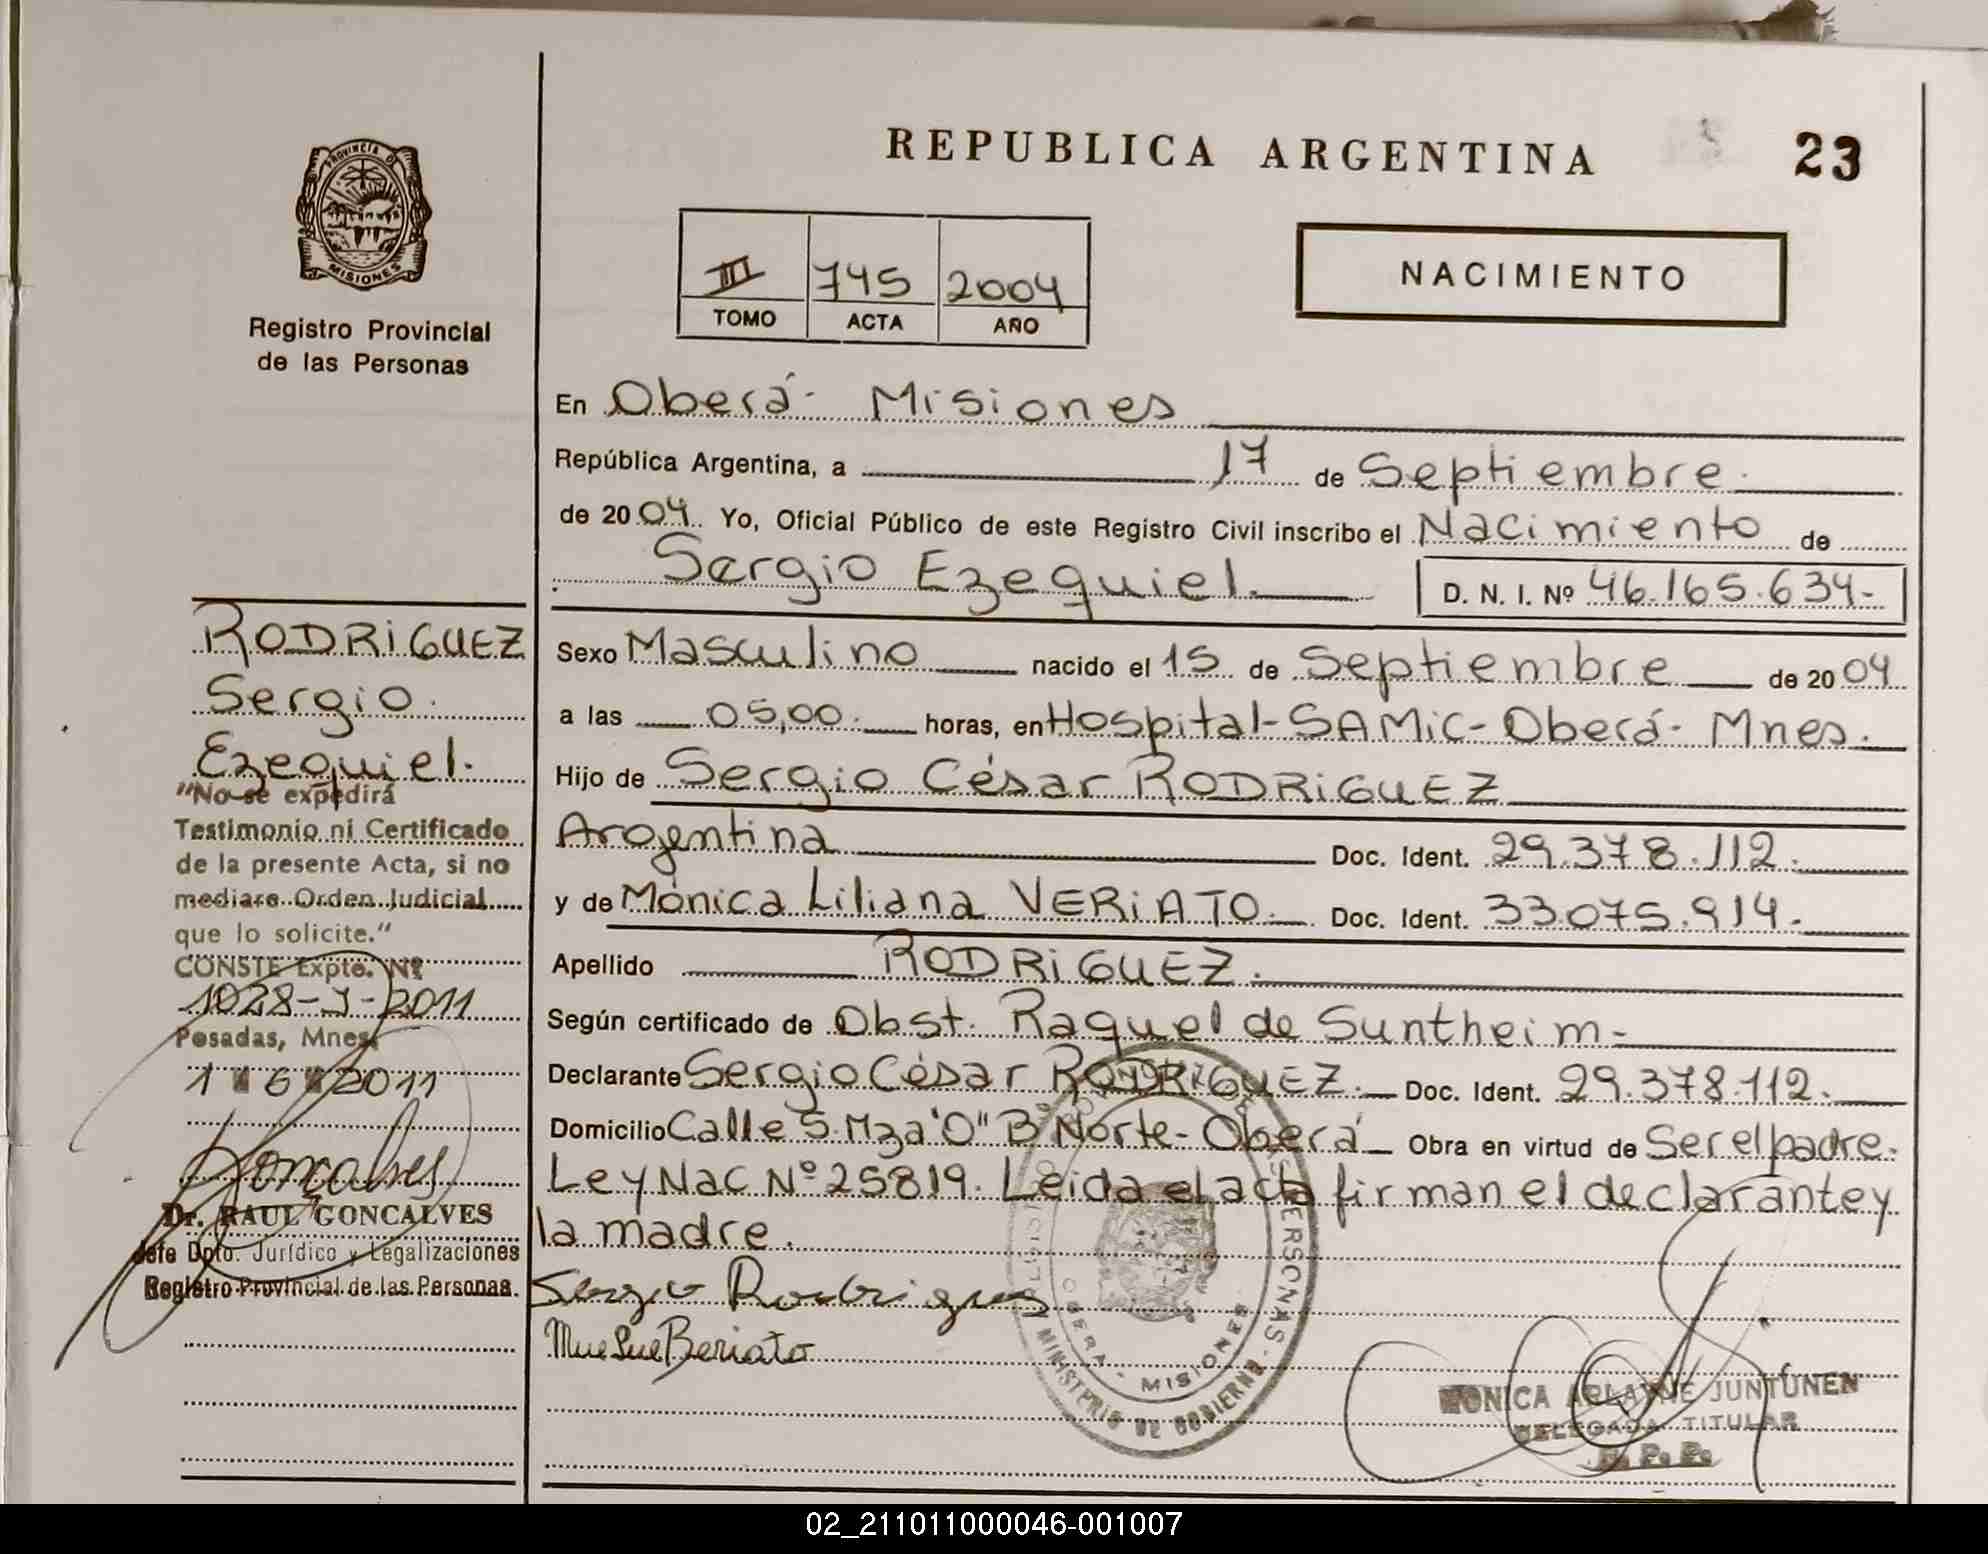 REPUBLICA ARGENTINA
23
PROVINCIA DE
MISIONES
Registro Provincial
de las Personas
III 745 2004
TOMO ACTA AÑO
NACIMIENTO
En Oberá- Misiones
República Argentina, a 17 de Septiembre.
de 2004. Yo, Oficial Público de este Registro Civil inscribo el Nacimiento de
Sergio Ezequiel. D. N. I. Nº 46.165.634-
Sexo Masculino nacido el 15 de Septiembre de 2004
a las 05,00. horas, en Hospital-SAMiC-Oberá- Mnes.
Hijo de Sergio César RODRiGUEZ
Argentina Doc. Ident. 29.378.112.
y de Mónica Liliana VERiATO. Doc. Ident. 33.075.914.
Apellido RODRiGUEZ.
Según certificado de Obst. Raquel de Suntheim-
Declarante Sergio César RODRiGUEZ. Doc. Ident. 29.378.112.
Domicilio Calle 5. Mza "O" Bº Norte- Oberá Obra en virtud de Ser el padre.
Ley Nac Nº 25819. Leida el acta firman el declarante y
la madre.
Sergio Rodriguez
Beriato
RODRiGUEZ
Sergio.
Ezequiel.
"No se expedirá
Testimonio ni Certificado
de la presente Acta, si no
mediare Orden Judicial
que lo solicite."
CONSTE Expte. Nº
1028-J-2011
Posadas, Mnes,
1 6 2011
Goncalves
Dr. RAUL GONCALVES
Jefe Dpto. Jurídico y Legalizaciones
Registro Provincial de las Personas.
PERSONAS
MINISTERIO DE GOBIERNO
OBERA - MISIONES
MONICA ARLAYNE JUNTUNEN
DELEGADA TITULAR
R. P. P.
02_211011000046-001007